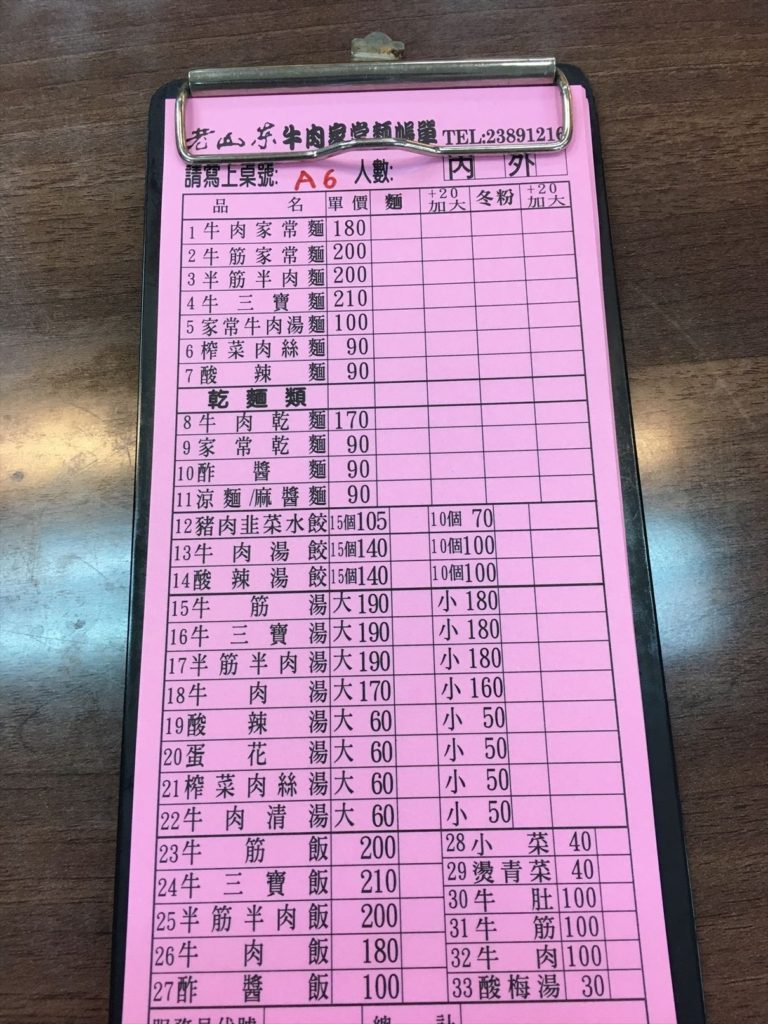 老山东牛肉家常麵帳單 TEL:23891216
請寫上桌號: A6 人數: 內 外
品名 單價 麵 +20加大 冬粉 +20加大
1 牛肉家常麵 180
2 牛筋家常麵 200
3 半筋半肉麵 200
4 牛三寶麵 210
5 家常牛肉湯麵 100
6 榨菜肉絲麵 90
7 酸辣麵 90
乾麵類
8 牛肉乾麵 170
9 家常乾麵 90
10 酢醬麵 90
11 涼麵/麻醬麵 90
12 豬肉韭菜水餃 15個 105 10個 70
13 牛肉湯餃 15個 140 10個 100
14 酸辣湯餃 15個 140 10個 100
15 牛筋湯 大 190 小 180
16 牛三寶湯 大 190 小 180
17 半筋半肉湯 大 190 小 180
18 牛肉湯 大 170 小 160
19 酸辣湯 大 60 小 50
20 蛋花湯 大 60 小 50
21 榨菜肉絲湯 大 60 小 50
22 牛肉清湯 大 60 小 50
23 牛筋飯 200 28 小菜 40
24 牛三寶飯 210 29 燙青菜 40
25 半筋半肉飯 200 30 牛肚 100
26 牛肉飯 180 31 牛筋 100
27 酢醬飯 100 32 牛肉 100
33 酸梅湯 30
服務員代號 總計